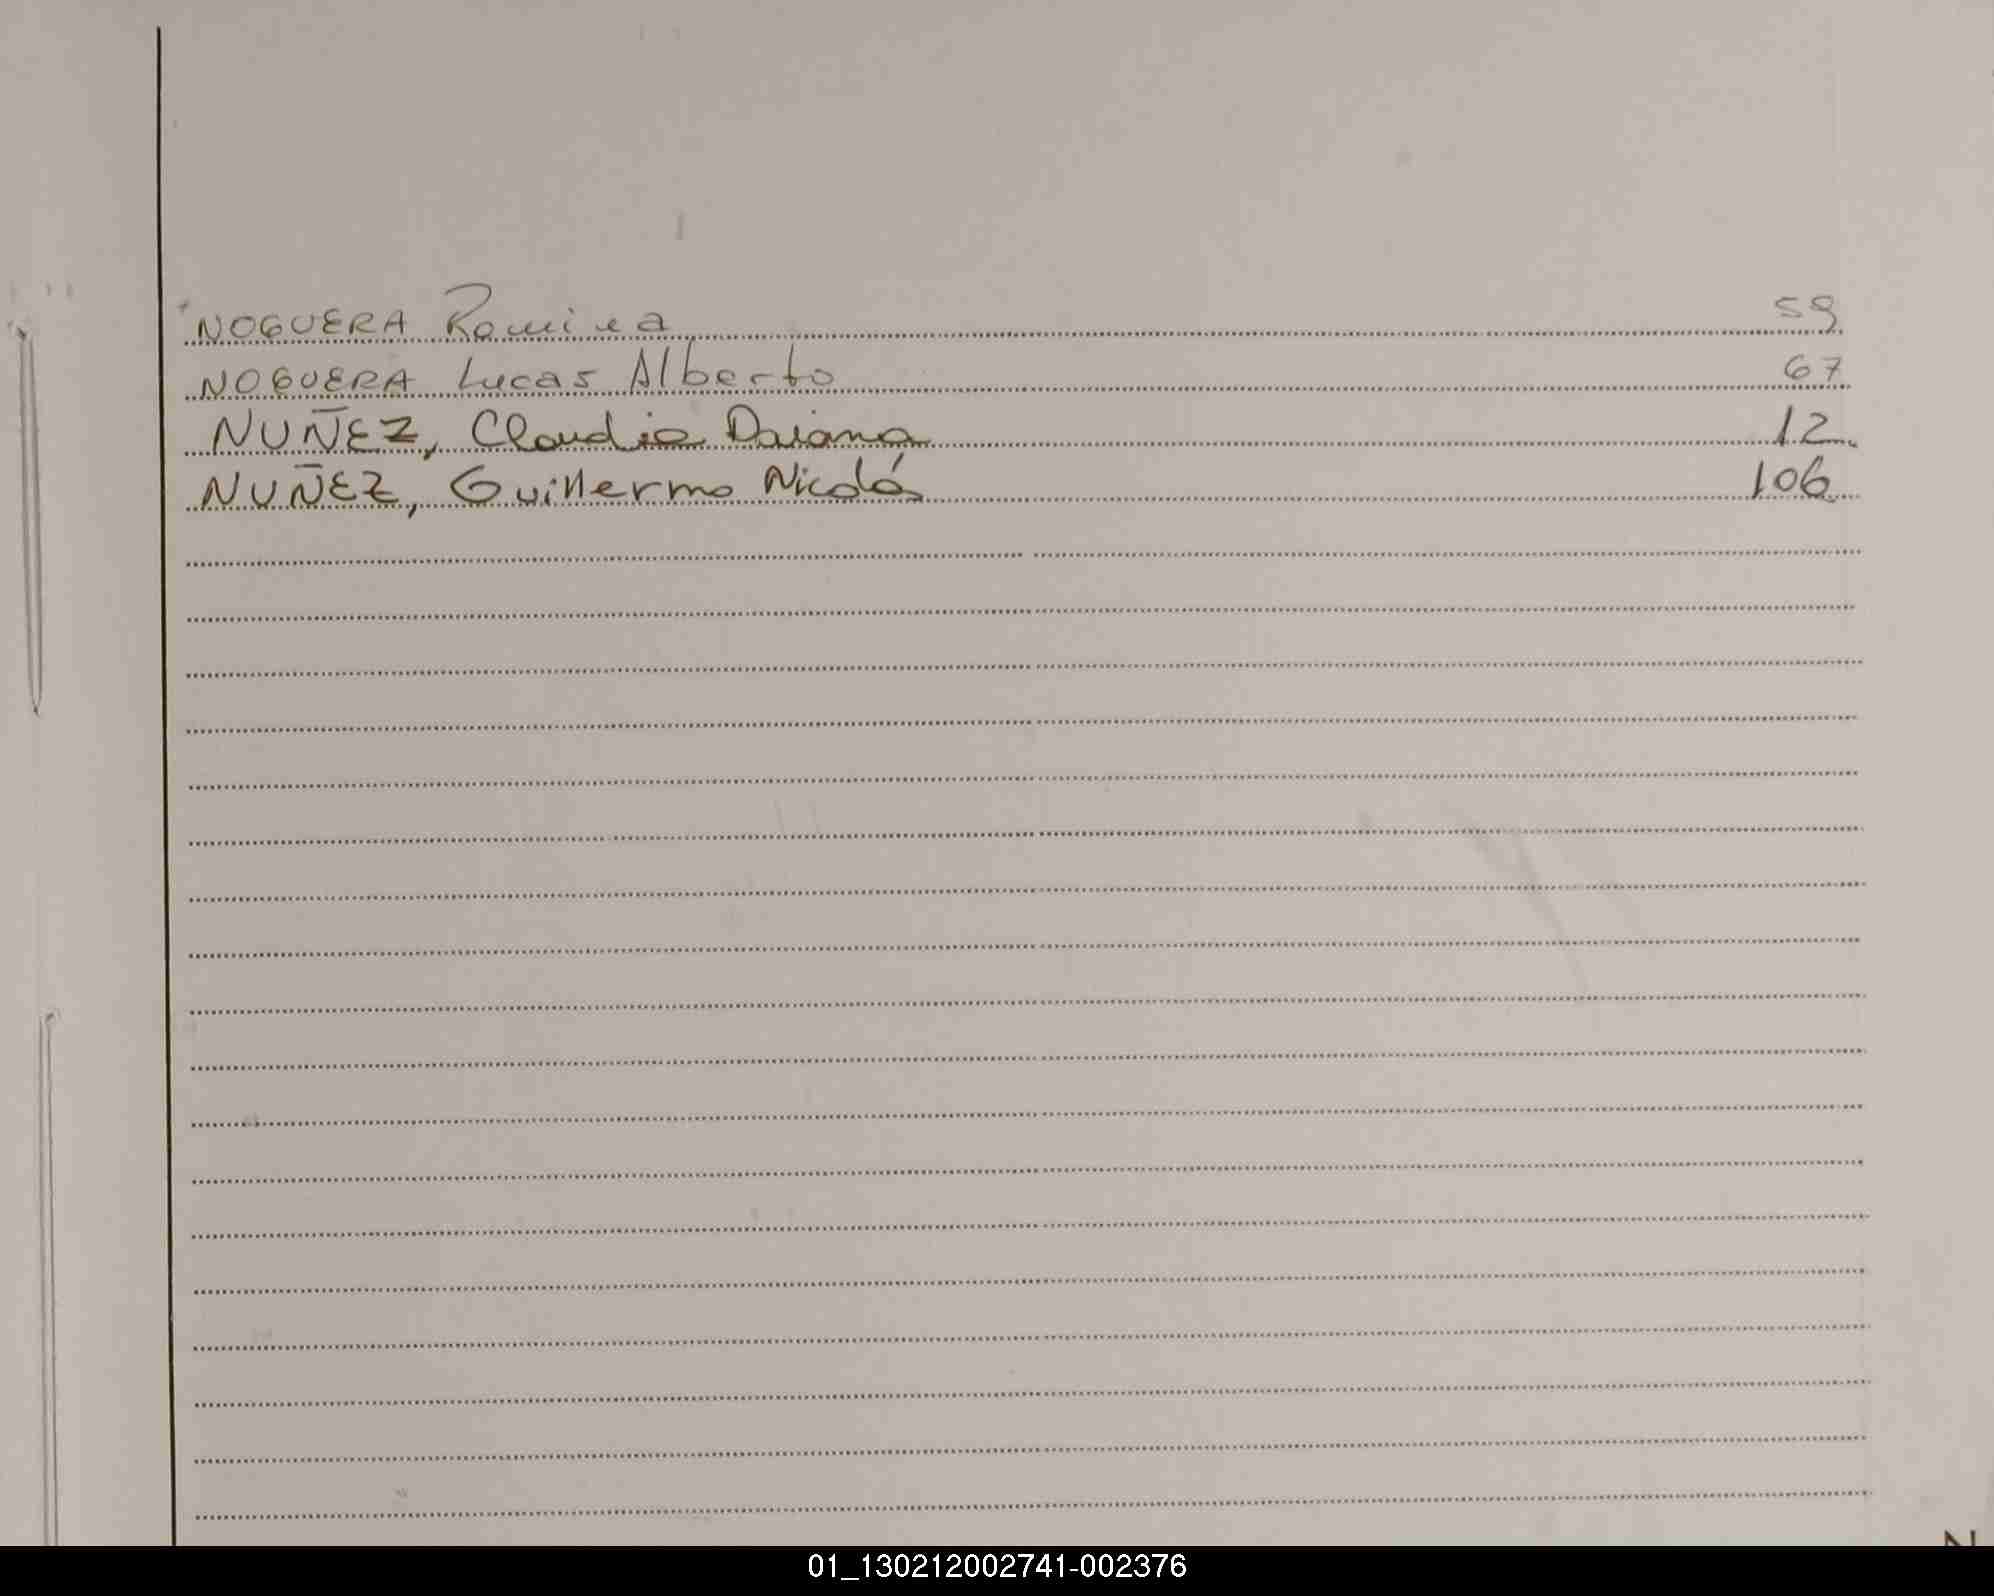 NOGUERA Romina 59
NOGUERA Lucas Alberto 67
NUÑEZ, Claudia Daiana 12
NUÑEZ, Guillermo Nicolás 106
N
01_130212002741-002376